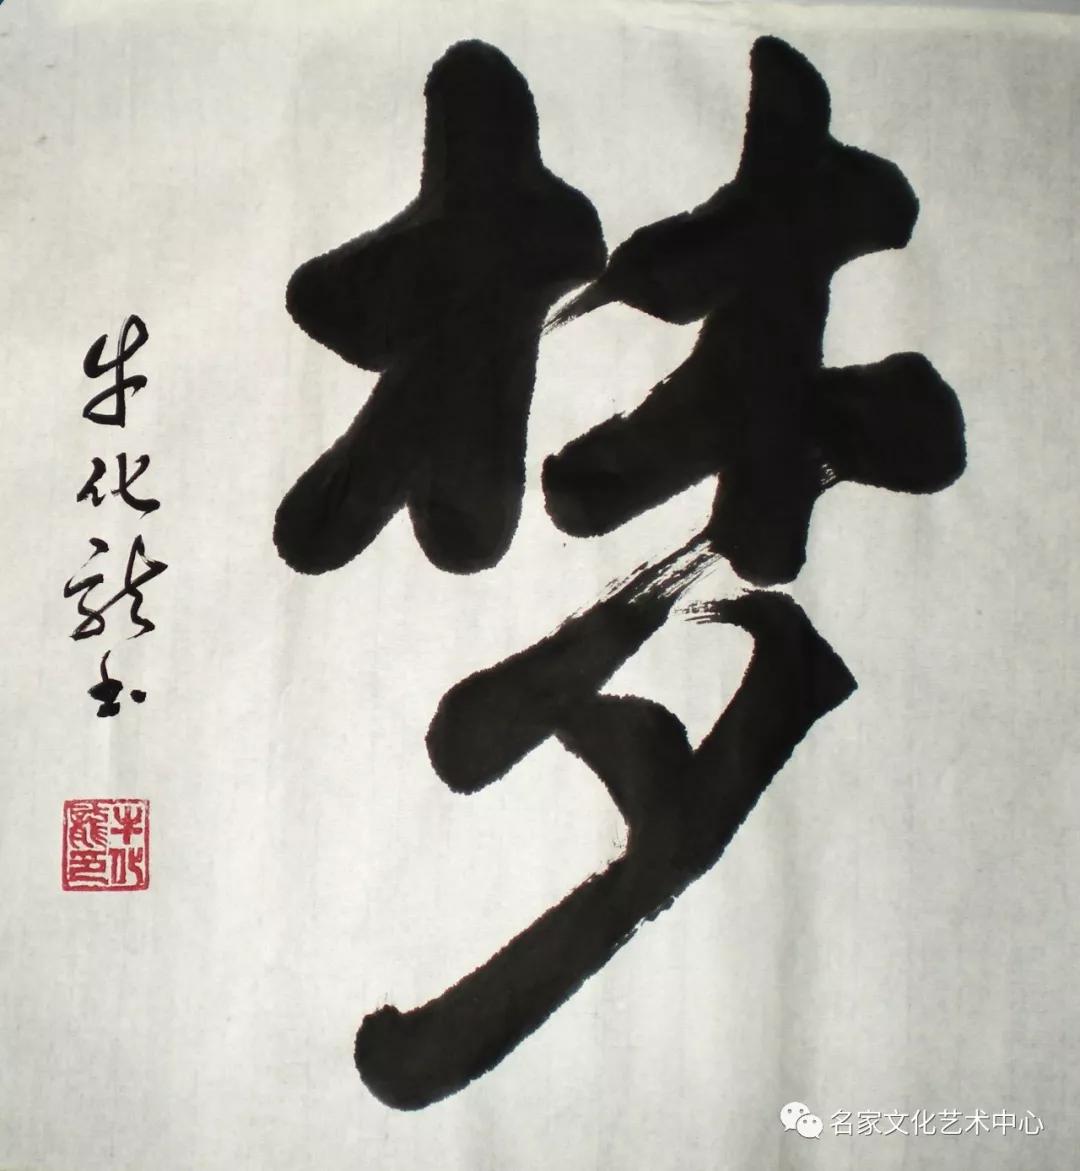 梦
牛化龙书
牛化龍印
名家文化艺术中心